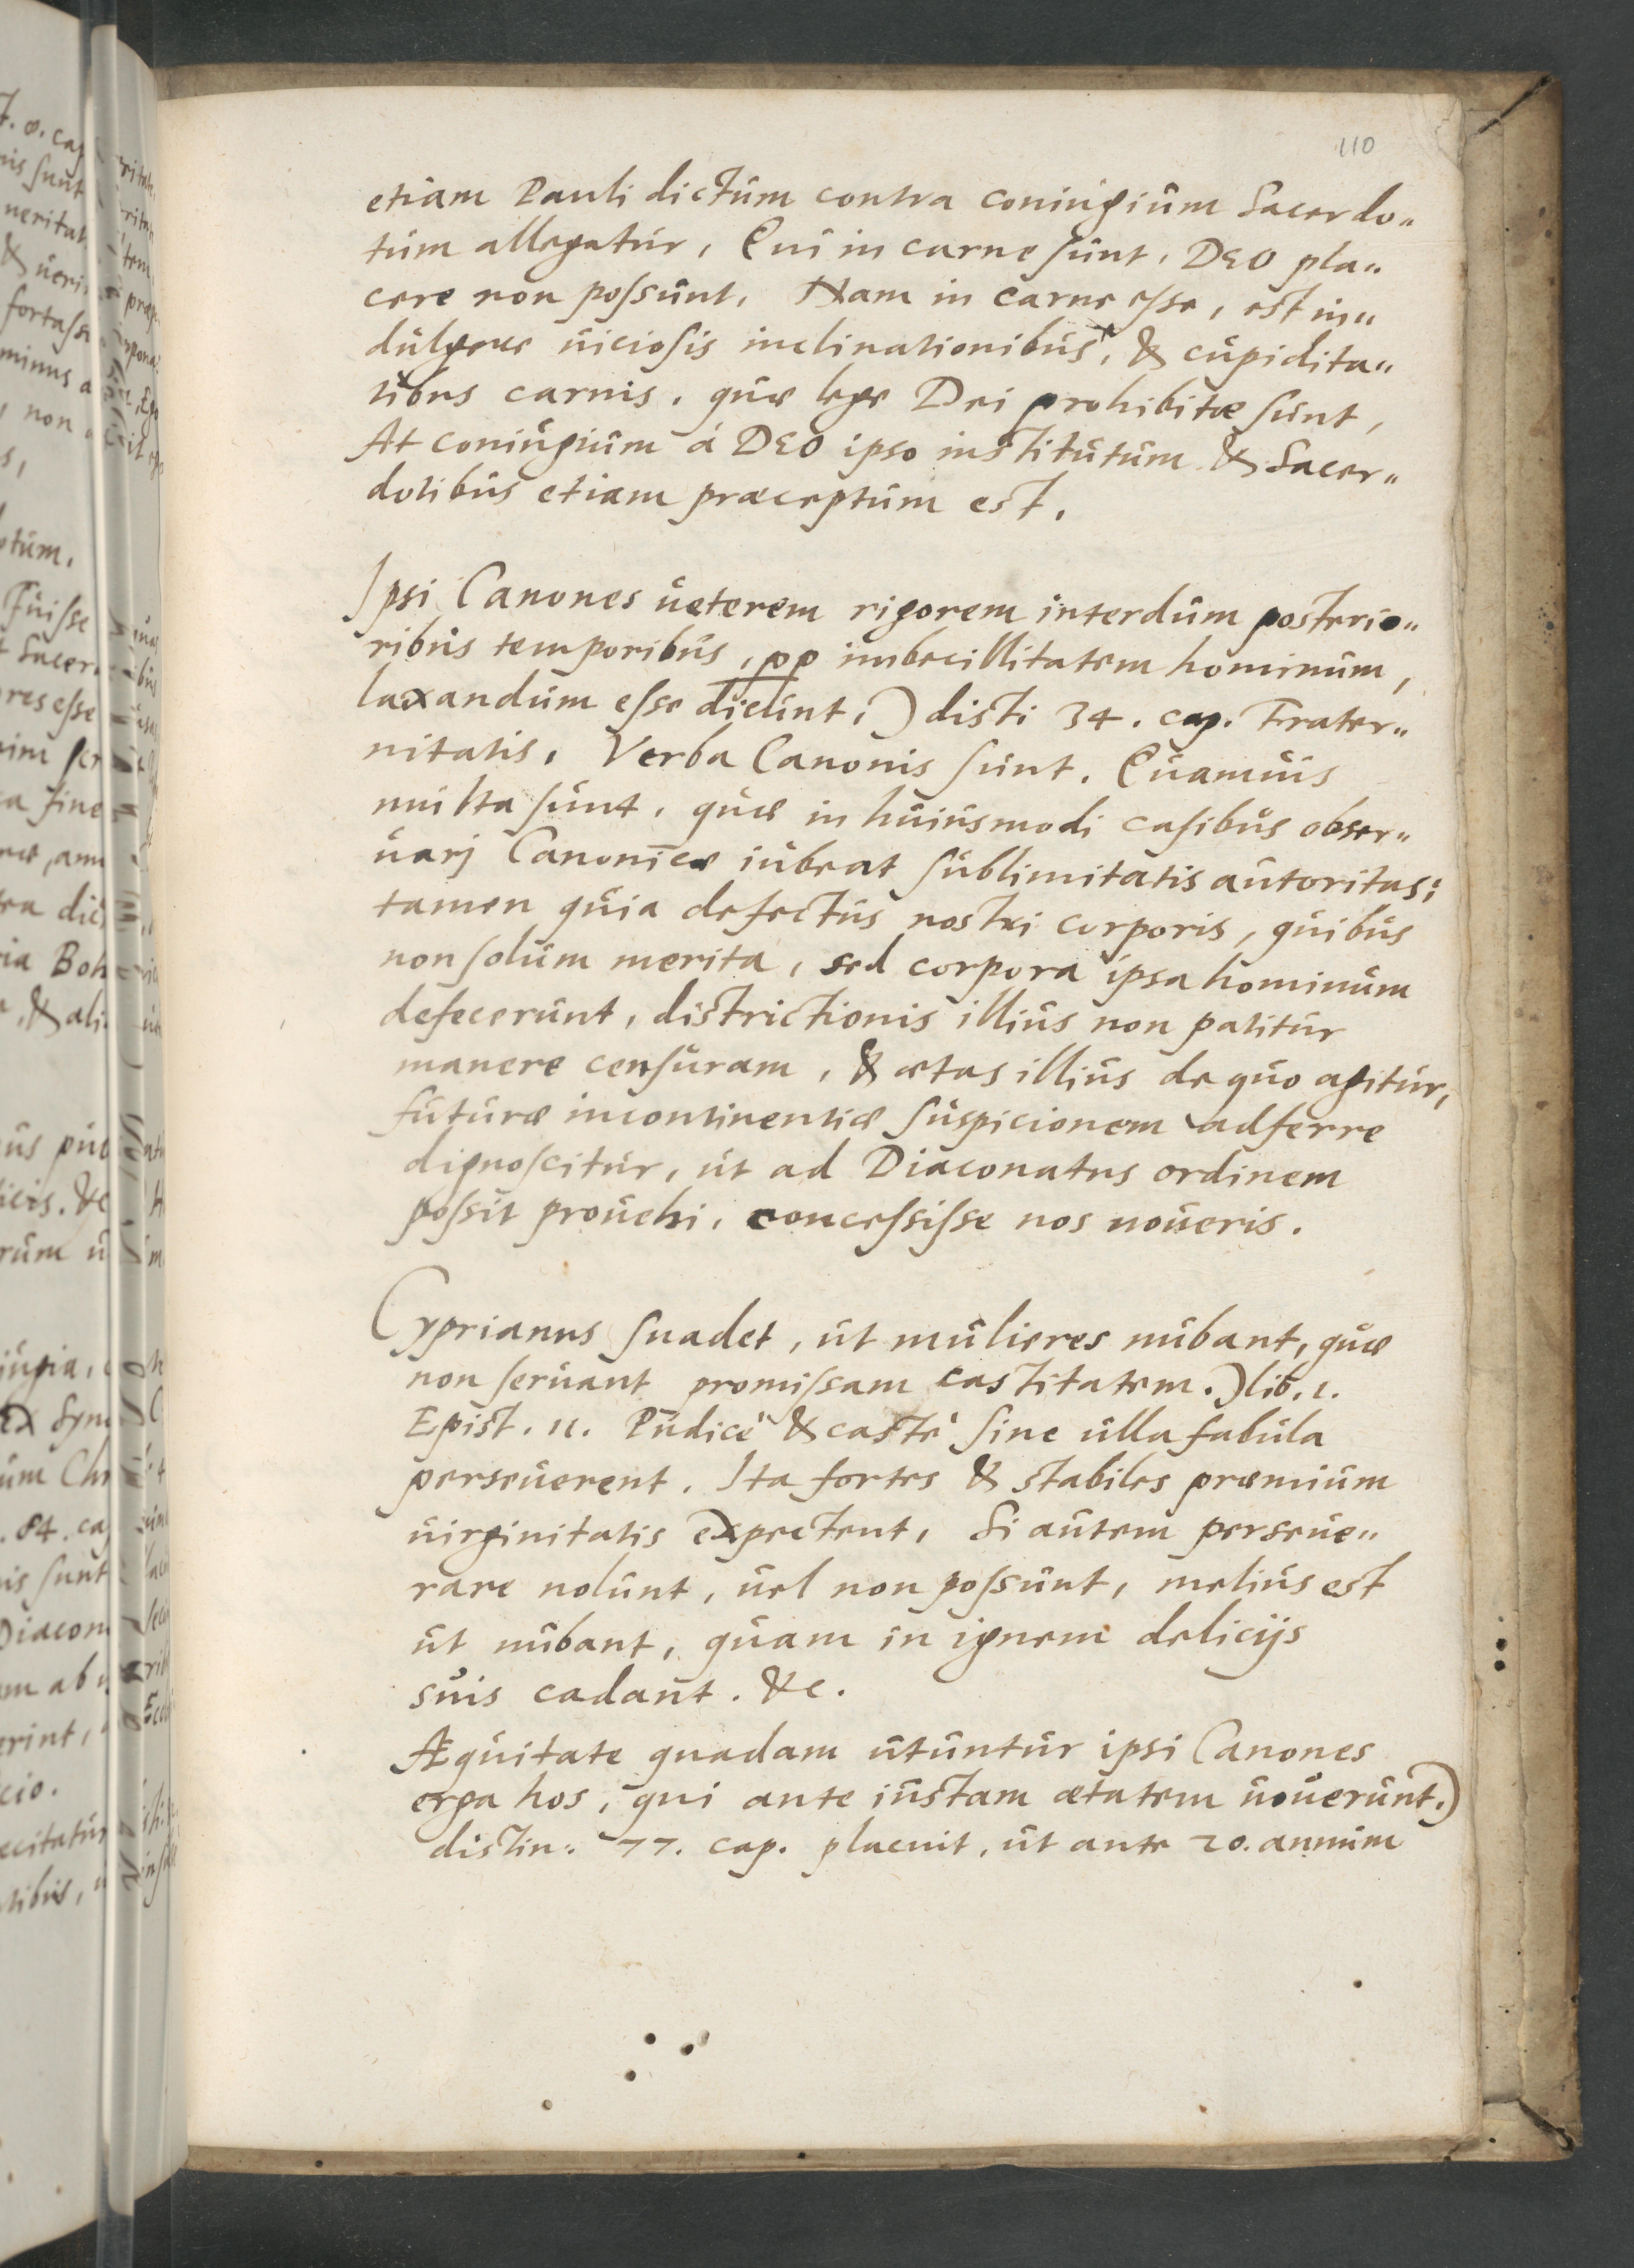 110
etiam Pauli dictum contra coniugium Sacerdo„
tum allegatur, Qui in carne sunt, DEO pla„
cere non possunt, Nam in carne esse, est in„
dulgere uiciosis inclinationibus, & cupidita„
tibus carnis, quæ lege Dei prohibitæ sunt,
At coniugium á DEO ipso institutum & Sacer„
dotibus etiam præceptum est,
Ipsi Canones ueterem rigorem interdum posterio„
ribus temporibus, pp imbecillitatem hominum,
laxandum esse dicunt,) disti 34. cap. Frater„
nitatis, Verba Canonis sunt. Quamuis
multa sunt, quæ in huiusmodi casibus obser„
uarj Canonicæ iubeat sublimitatis autoritas;
tamen quia defectus nostri corporis, quibus
non solum merita, sed corpora ipsa hominum
defecerunt, districtionis illius non patitur
manere censuram, & ætas illius de quo agitur,
futuræ incontinentiæ suspicionem adferre
dignoscitur, ut ad Diaconatus ordinem
possit prouehi, concessisse nos noueris.
Cyprianus suadet, ut mulieres nubant, quæ
non seruant promissam castitatem.) lib. 1.
Epist. 11. Pudicè & castè sine ulla fabula
perseuerent. Ita fortes & stabiles præmium
uirginitatis expectent, Si autem perseue„
rare nolunt, uel non possunt, melius est
ut nubant, quam in ignem delicijs
suis cadant. &c.
Æquitate quadam utuntur ipsi Canones
erga hos, qui ante iustam ætatem uouerunt.)
distin: 77. cap. placuit, ut ante 20. annum